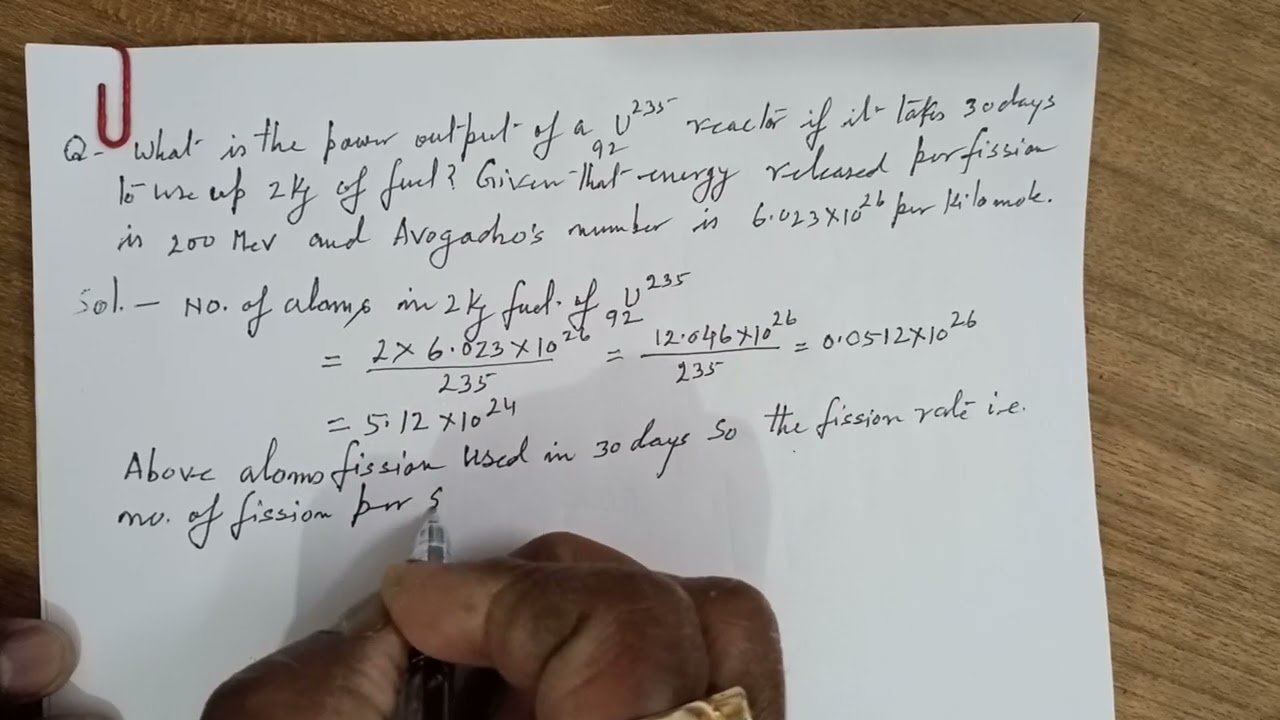 Q- What is the power output of a ₉₂U²³⁵ reactor if it takes 30 days
to use up 2 Kg of fuel? Given that energy released per fission
is 200 MeV and Avogadro's number is 6.023×10²⁶ per Kilomole.
Sol. - No. of atoms in 2 Kg fuel of ₉₂U²³⁵
= 2 × 6.023 × 10²⁶ / 235 = 12.046×10²⁶ / 235 = 0.0512×10²⁶
= 5.12 × 10²⁴
Above atoms fission used in 30 days So the fission rate i.e.
no. of fission per s